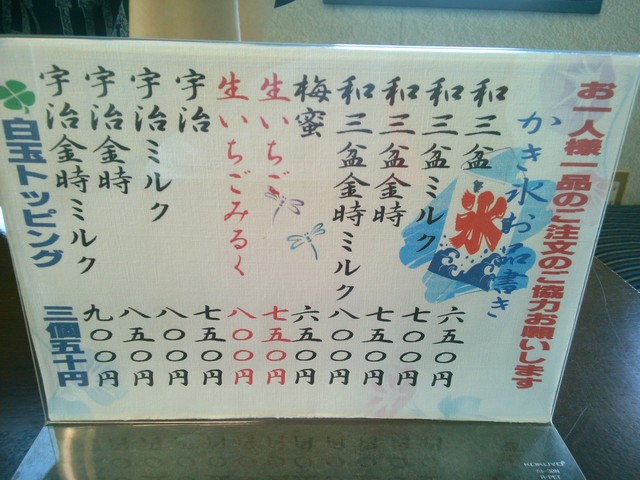 お一人様一品のご注文のご協力お願いします
かき氷お品書き
氷
和三盆 六五〇円
和三盆ミルク 七〇〇円
和三盆金時 七五〇円
和三盆金時ミルク 八〇〇円
梅蜜 六五〇円
生いちご 七五〇円
生いちごみるく 八〇〇円
宇治 七五〇円
宇治ミルク 八〇〇円
宇治金時 八五〇円
宇治金時ミルク 九〇〇円
白玉トッピング 三個五十円